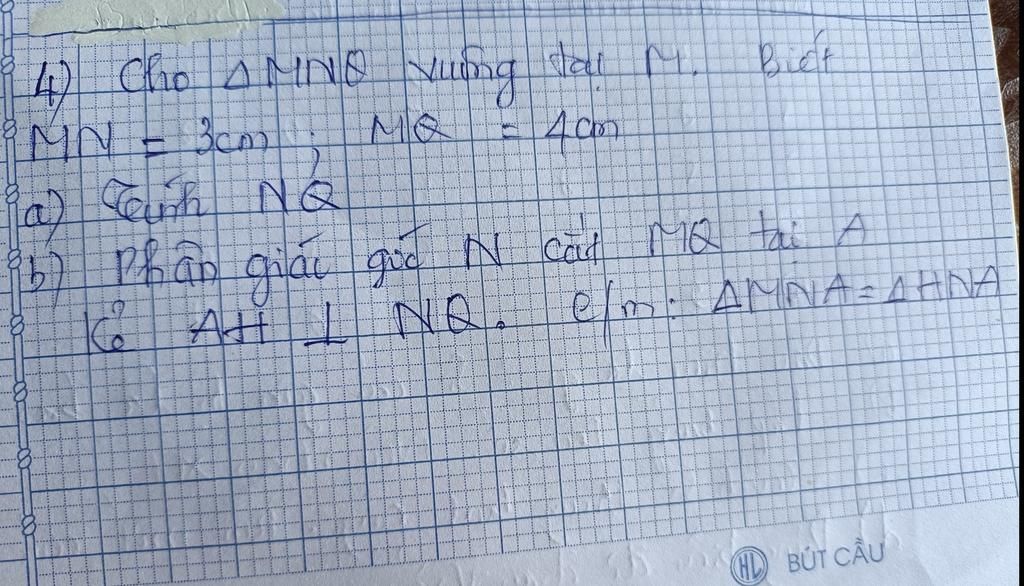 4) Cho ΔMNQ vuông tại M. Biết
MN = 3cm ; MQ = 4cm
a) Tính NQ
b) Phân giác góc N cắt MQ tại A
Kẻ AH ⊥ NQ. c/m: ΔMNA = ΔHNA
HL BÚT CẦU